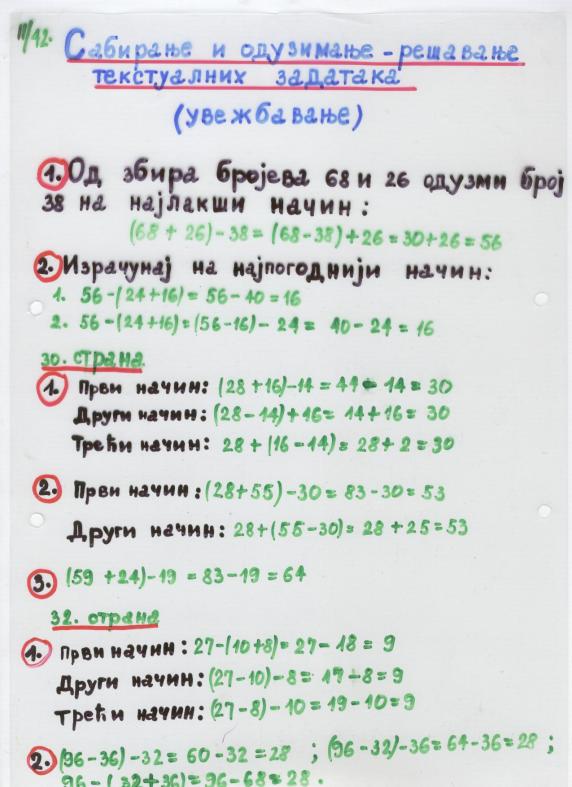 III/42.
Сабирање и одузимање - решавање
текстуалних задатака
(увежбавање)
1. Од збира бројева 68 и 26 одузми број
38 на најлакши начин:
(68 + 26) - 38 = (68-38) + 26 = 30+26 = 56
2. Израчунај на најпогоднији начин:
1. 56 - (24+16) = 56 - 40 = 16
2. 56 - (24+16) = (56-16) - 24 = 40 - 24 = 16
30. страна
1. Први начин: (28 +16)-14 = 44 - 14 = 30
Други начин: (28-14)+16 = 14+16 = 30
Трећи начин: 28 + (16-14) = 28+2 = 30
2. Први начин: (28+55) -30 = 83-30 = 53
Други начин: 28+(55-30) = 28 + 25 = 53
3. (59 +24)-19 = 83-19 = 64
32. страна
1. Први начин: 27-(10+8) = 27-18 = 9
Други начин: (27-10)-8 = 17-8 = 9
Трећи начин: (27-8) -10 = 19-10 = 9
2. (96-36)-32 = 60-32 = 28 ; (96-32)-36 = 64-36 = 28 ;
96-(32+36) = 96-68 = 28.